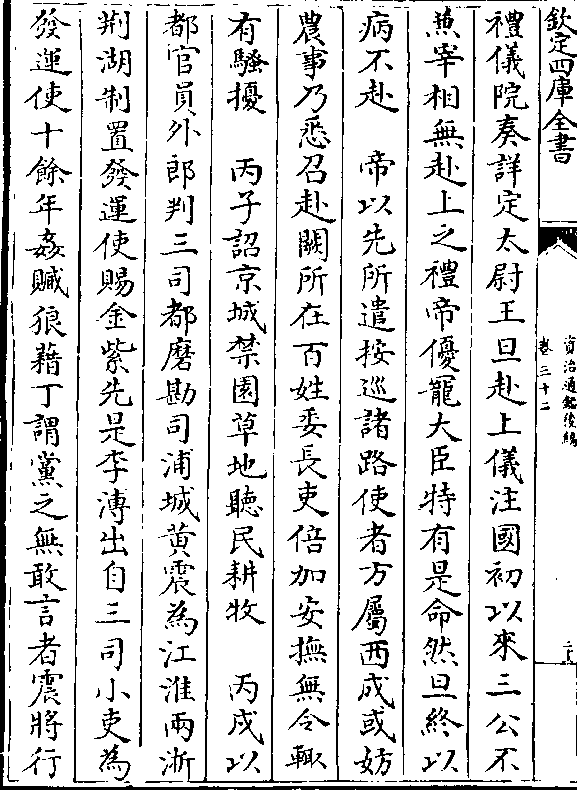 欽定四庫全書
資治通鑑後編
卷三十二
禮儀院奏詳定太尉王旦赴上儀注國初以來三公不
兼宰相無赴上之禮帝優寵大臣特有是命然旦終以
病不赴　帝以先所遣按巡諸路使者方屬西成或妨
農事乃悉召赴闕所在百姓委長吏倍加安撫無令輒
有騷擾　丙子詔京城禁園草地聽民耕牧　丙戌以
都官員外郎判三司都磨勘司浦城黃震為江淮兩浙
荆湖制置發運使賜金紫先是李溥出自三司小吏為
發運使十餘年姦贓狼藉丁謂黨之無敢言者震將行